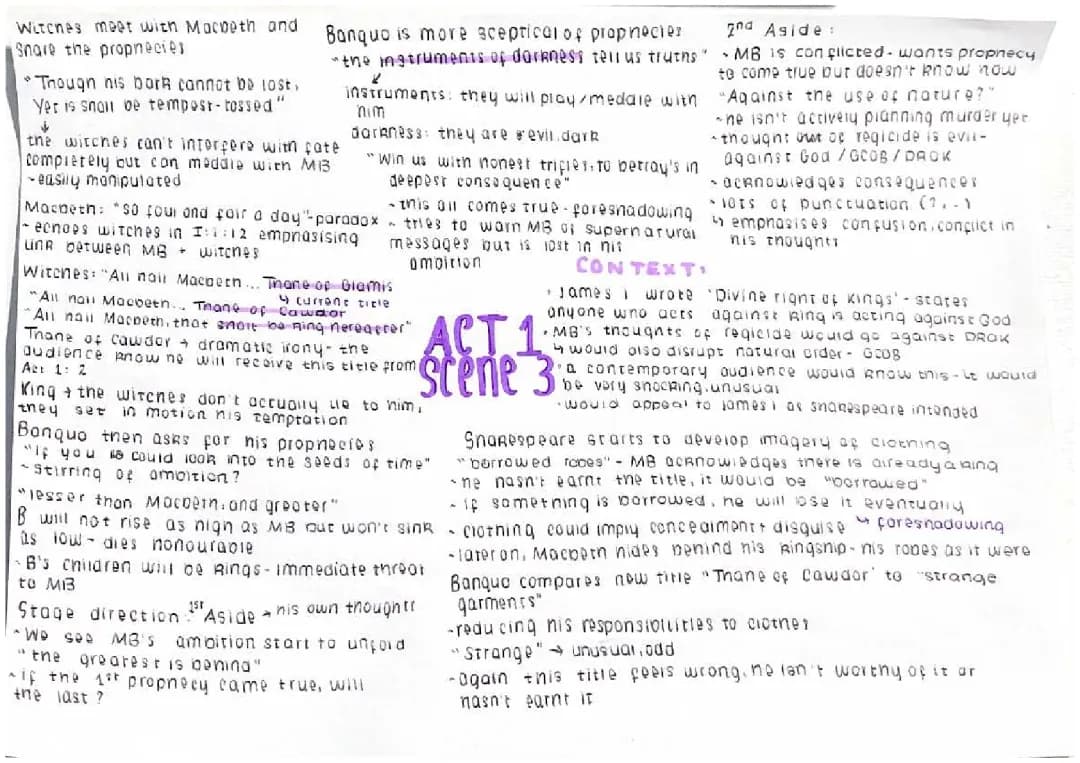 Witches meet with Macbeth and
share the prophecies
"Though his bark cannot be lost,
Yet is shall be tempest-tossed"
↓
the witches can't interfere with fate
completely but can meddle with MB
~easily manipulated
Macbeth: "so foul and fair a day"-paradox
~echoes witches in I:1:12 emphasising
link between MB + witches
Witches: "All hail Macbeth... Thane of Glamis
↳ current title
"All hail Macbeth... Thane of Cawdor
"All hail Macbeth, that shalt be king hereafter"
Thane of Cawdor → dramatic irony- the
audience know he will receive this title from
Act 1: 2
King + the witches don't actually lie to him,
they set in motion his temptation
Banquo then asks for his prophecies
"if you could look into the seeds of time"
~stirring of ambition?
"lesser than Macbeth, and greater"
B will not rise as high as MB but won't sink
as low - dies honourable
~B's children will be kings - immediate threat
to MB
Stage direction: 1st Aside → his own thoughts
~We see MB's ambition start to unfold
"the greatest is behind"
~if the 1st prophecy came true, will
the last?
Banquo is more sceptical of prophecies
"the instruments of darkness tell us truths"
↙
instruments: they will play/meddle with
him
darkness: they are evil, dark
"Win us with honest trifles, to betray's in
deepest consequence"
~this all comes true - foreshadowing
~tries to warn MB of supernatural
messages but is lost in his
ambition
2nd Aside:
~MB is conflicted - wants prophecy
to come true but doesn't know how
"Against the use of nature?"
~he isn't actively planning murder yet
~thought of regicide is evil-
against God /GCOB/DROK
~acknowledges consequences
~lots of punctuation (?, - )
↳ emphasises confusion, conflict in
his thoughts
CONTEXT:
James I wrote 'Divine right of kings' - states
anyone who acts against king is acting against God
MB's thoughts of regicide would go against DROK
↳ would also disrupt natural order - GCOB
a contemporary audience would know this - it would
be very shocking, unusual
would appeal to James I as Shakespeare intended
ACT 1
Scene 3
Shakespeare starts to develop imagery of clothing
"borrowed robes" - MB acknowledges there is already a king
~he hasn't earnt the title, it would be "borrowed"
~if something is borrowed, he will lose it eventually
↳ foreshadowing
~clothing could imply concealment + disguise
~later on, Macbeth hides behind his kingship - his robes as it were
Banquo compares new title "Thane of Cawdor' to "strange
garments"
~reducing his responsibilities to clothes
"Strange" → unusual, odd
~again this title feels wrong, he isn't worthy of it or
hasn't earnt it